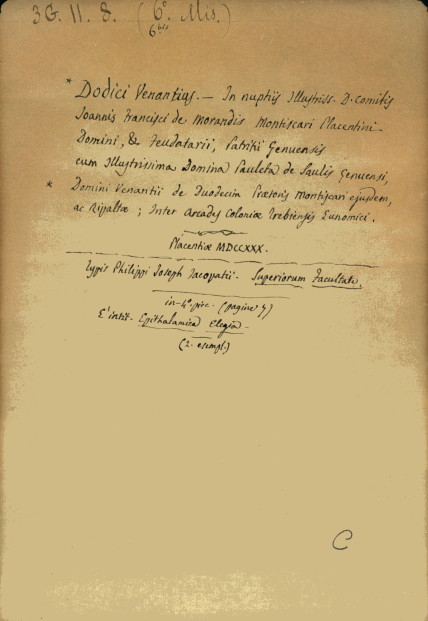 3G. 11. 8. (6º Mis.)
6 bis
* Dodici Venantius. — In nuptijs Illustriss. D. Comitis
Joannis Francisci de Morandis Montiscari Placentini
Domini, & Feudatarii, Patritii Genuensis
cum Illustrissima Domina Pauleta de Saulis Genuensi,
* Domini Venantii de Duodecim Prætoris Montiscari ejusdem,
ac Ripaltæ ; Inter Arcades Coloniæ Trebiensis Eunomici.
Placentiæ MDCCXXX.
Typis Philippi Joseph Jacopatii. Superiorum Facultate.
in-4º picc. (pagine 7)
E' intit. Epithalamica Elegia.
(2. esempl.)
C